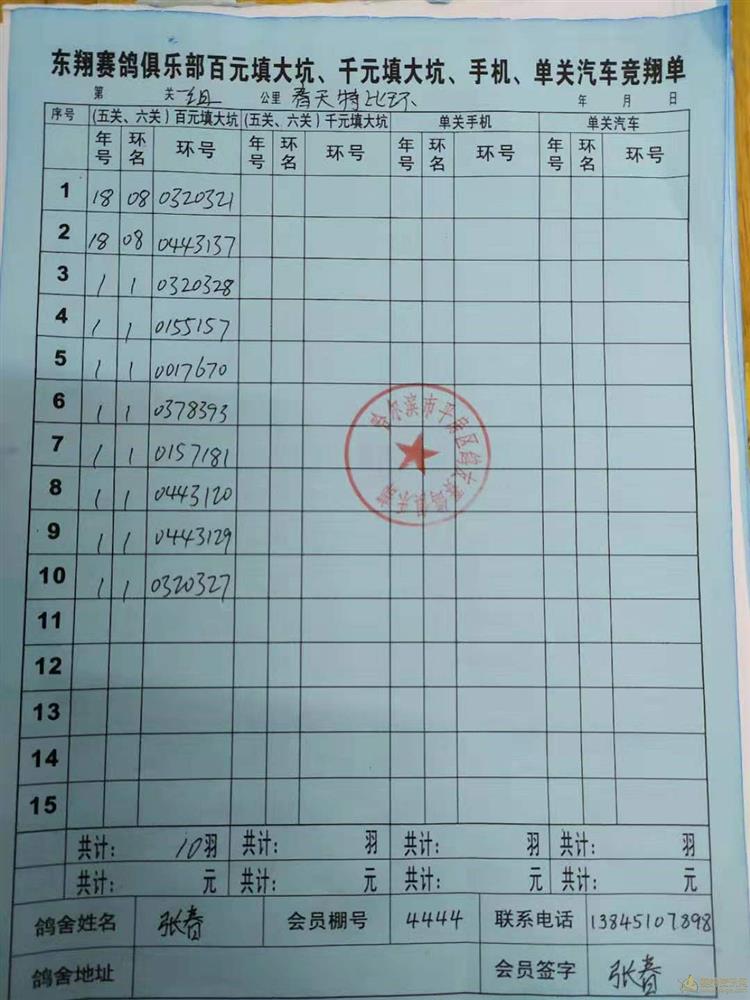 东翔赛鸽俱乐部百元填大坑、千元填大坑、手机、单关汽车竞翔单
第 关 一组 公里 春天特比环 年 月 日
序号 (五关、六关)百元填大坑 (五关、六关)千元填大坑 单关手机 单关汽车
年号 环名 环号 年号 环名 环号 年号 环名 环号 年号 环名 环号
1 18 08 0320321
2 18 08 0443137
3 1 1 0320328
4 1 1 0155157
5 1 1 0017670
6 1 1 0378393
7 1 1 0157181
8 1 1 0443120
9 1 1 0443129
10 1 1 0320327
11
12
13
14
15
共计: 10羽 共计: 羽 共计: 羽 共计: 羽
共计: 元 共计: 元 共计: 元 共计: 元
鸽舍姓名 张春 会员棚号 4444 联系电话 13845107898
鸽舍地址 会员签字 张春
哈尔滨市平房区 赛鸽俱乐部